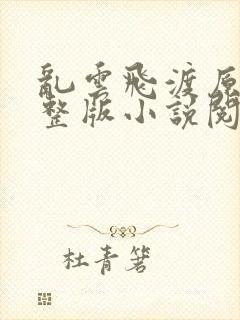 亂雲飛渡原
整版小説閱
杜青箸